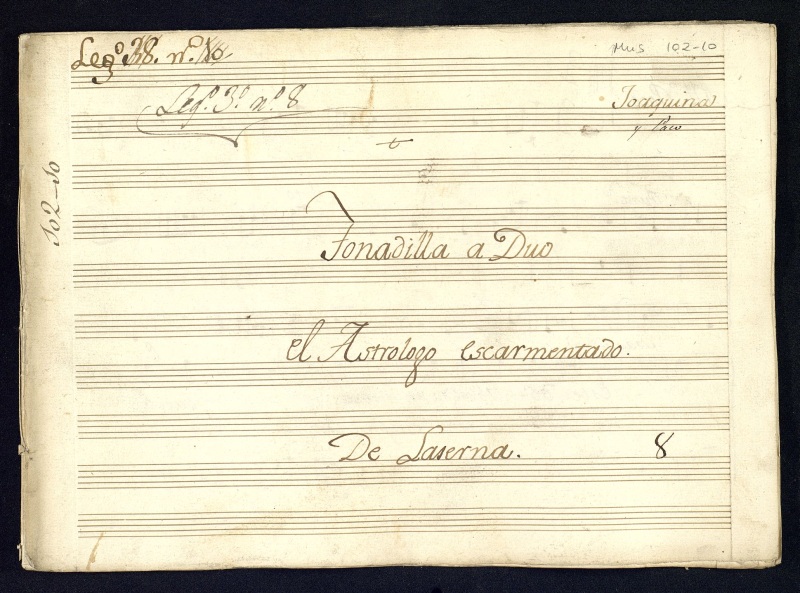 Mus 102-10
Leg.º 3.º n.º 8
Joaquina
y Paco
102-10
Tonadilla a Duo
el Astrologo escarmentado.
De Laserna. 8